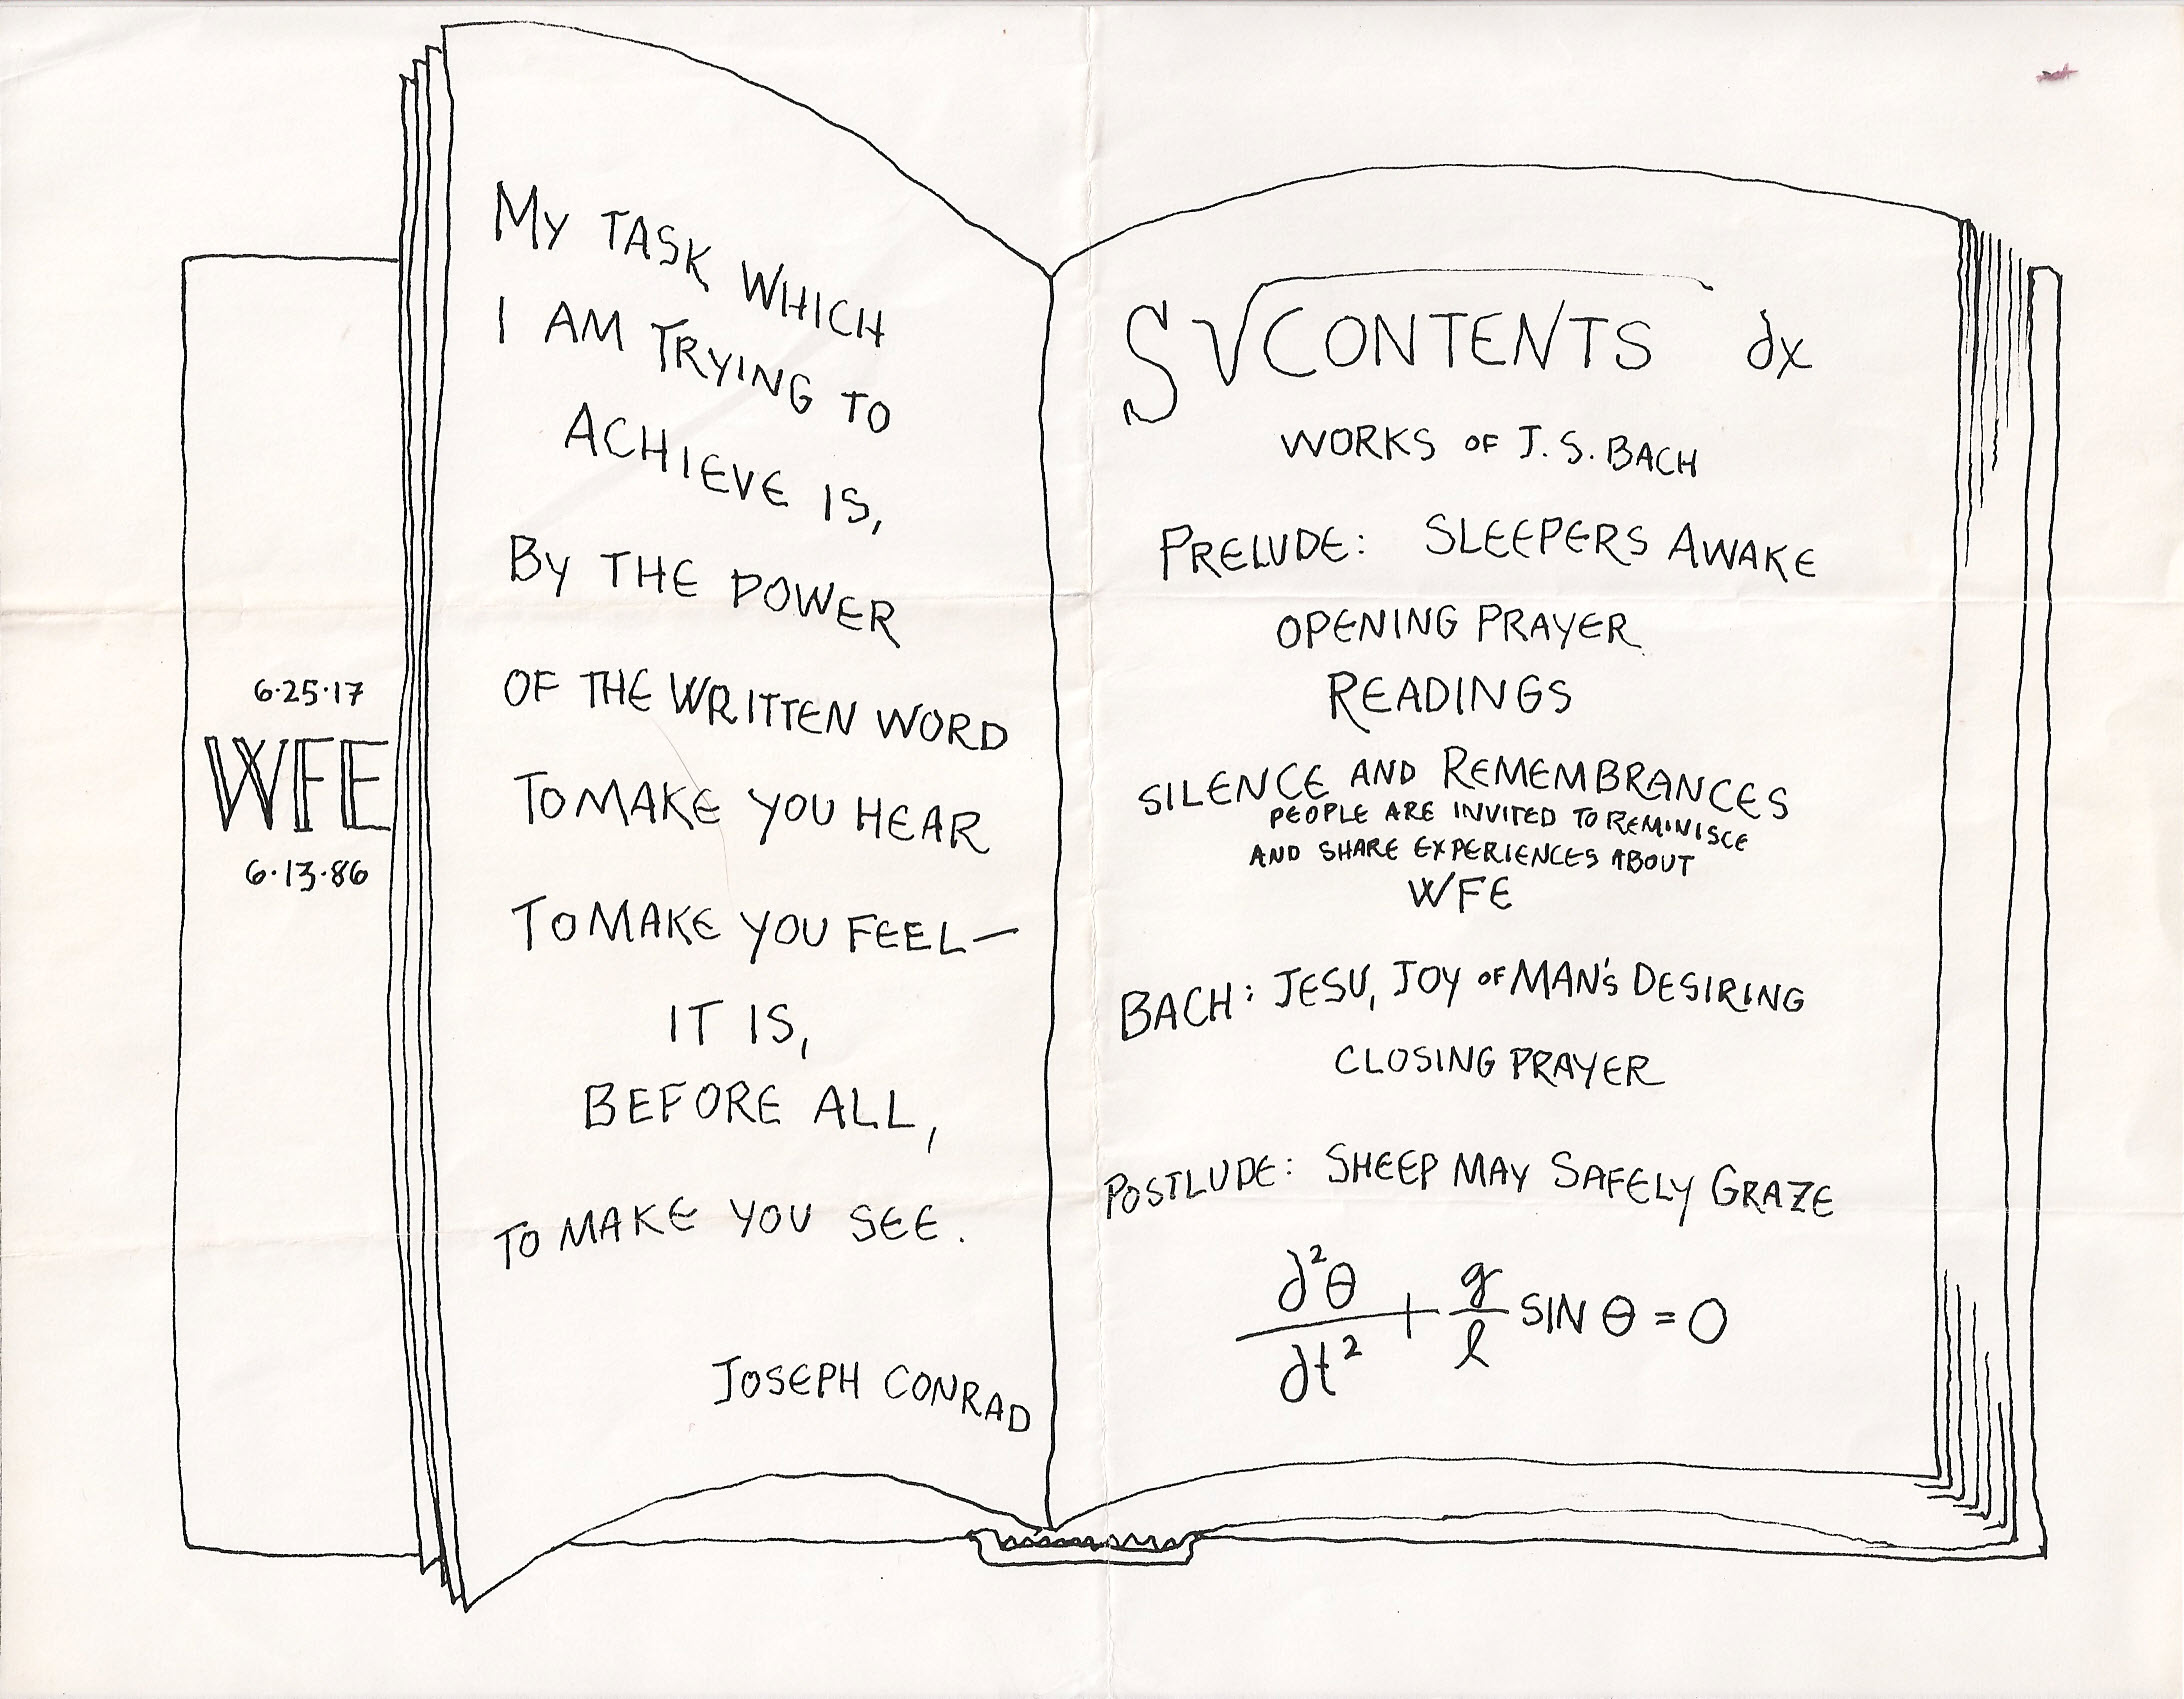 6·25·17
WFE
6·13·86
MY TASK WHICH
I AM TRYING TO
ACHIEVE IS,
BY THE POWER
OF THE WRITTEN WORD
TO MAKE YOU HEAR
TO MAKE YOU FEEL—
IT IS,
BEFORE ALL,
TO MAKE YOU SEE.
JOSEPH CONRAD
∫√CONTENTS dx
WORKS OF J. S. BACH
PRELUDE: SLEEPERS AWAKE
OPENING PRAYER
READINGS
SILENCE AND REMEMBRANCES
PEOPLE ARE INVITED TO REMINISCE
AND SHARE EXPERIENCES ABOUT
WFE
BACH: JESU, JOY OF MAN'S DESIRING
CLOSING PRAYER
POSTLUDE: SHEEP MAY SAFELY GRAZE
d²θ/dt² + g/l SIN θ = 0